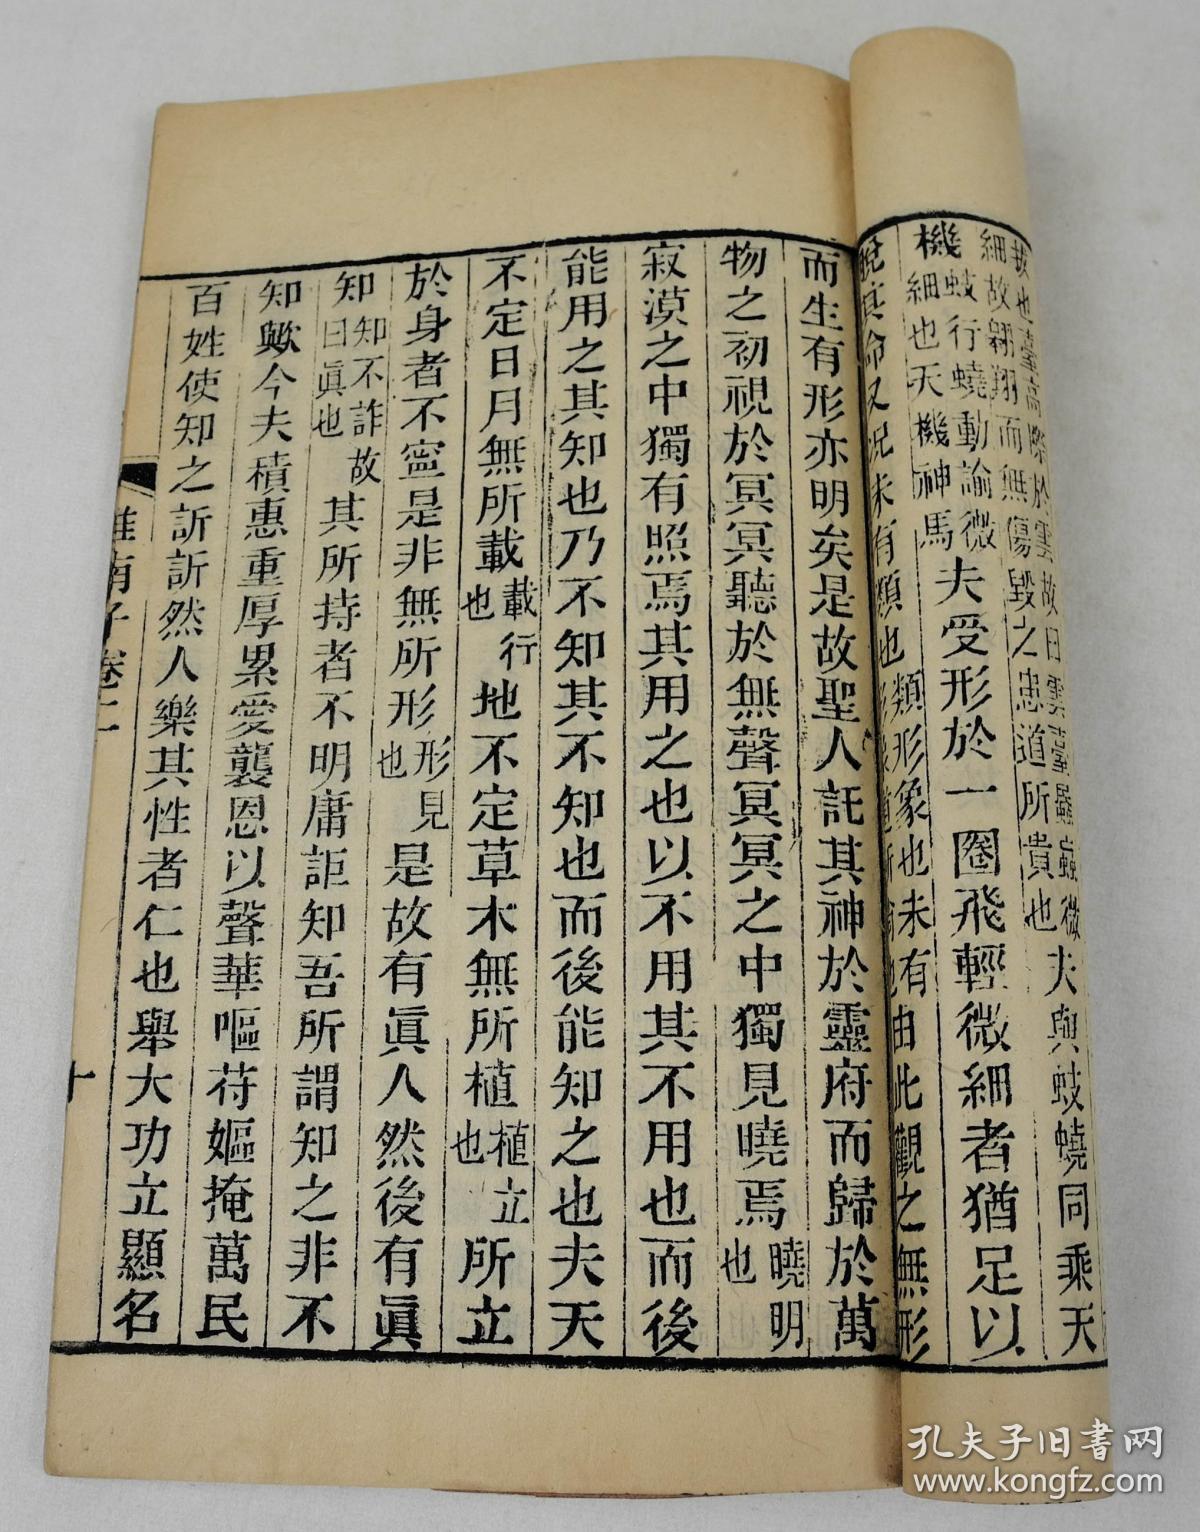 拔也臺高際於雲故曰雲臺蠛蟁微
細故翱翔而無傷毀之患道所貴也
夫與蚑蟯同乘天
機蚑行蟯動諭微細也天機神馬夫受形於一圈飛輕微細者猶足以
蛻其命又況未有類也類形象也未有由此觀之無形
而生有形亦明矣是故聖人託其神於靈府而歸於萬
物之初視於冥冥聽於無聲冥冥之中獨見曉焉曉明也
寂漠之中獨有照焉其用之也以不用其不用也而後
能用之其知也乃不知其不知也而後能知之也夫天
不定日月無所載載行也地不定草木無所植植立也所立
於身者不寧是非無所形形見也是故有眞人然後有眞
知知不詐故曰眞也其所持者不明庸詎知吾所謂知之非不
知歟今夫積惠重厚累愛襲恩以聲華嘔苻嫗掩萬民
百姓使知之訢訢然人樂其性者仁也舉大功立顯名
淮南子卷二
十
孔夫子旧書网
www.kongfz.com